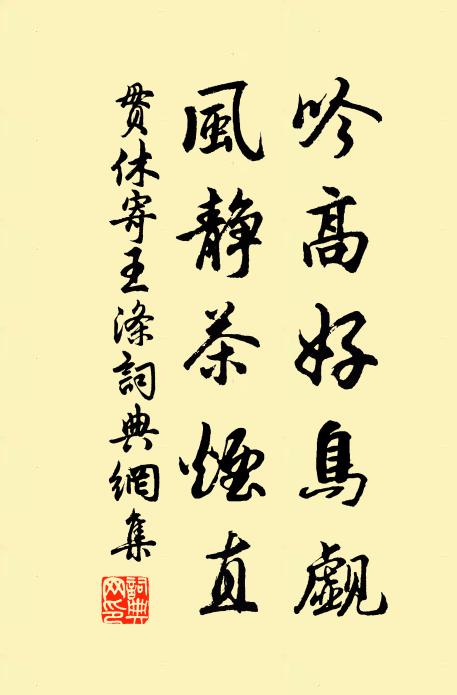 吟高好鳥覰
風静茶煙直
貫休寄王滌詞典網集
詞典
网印